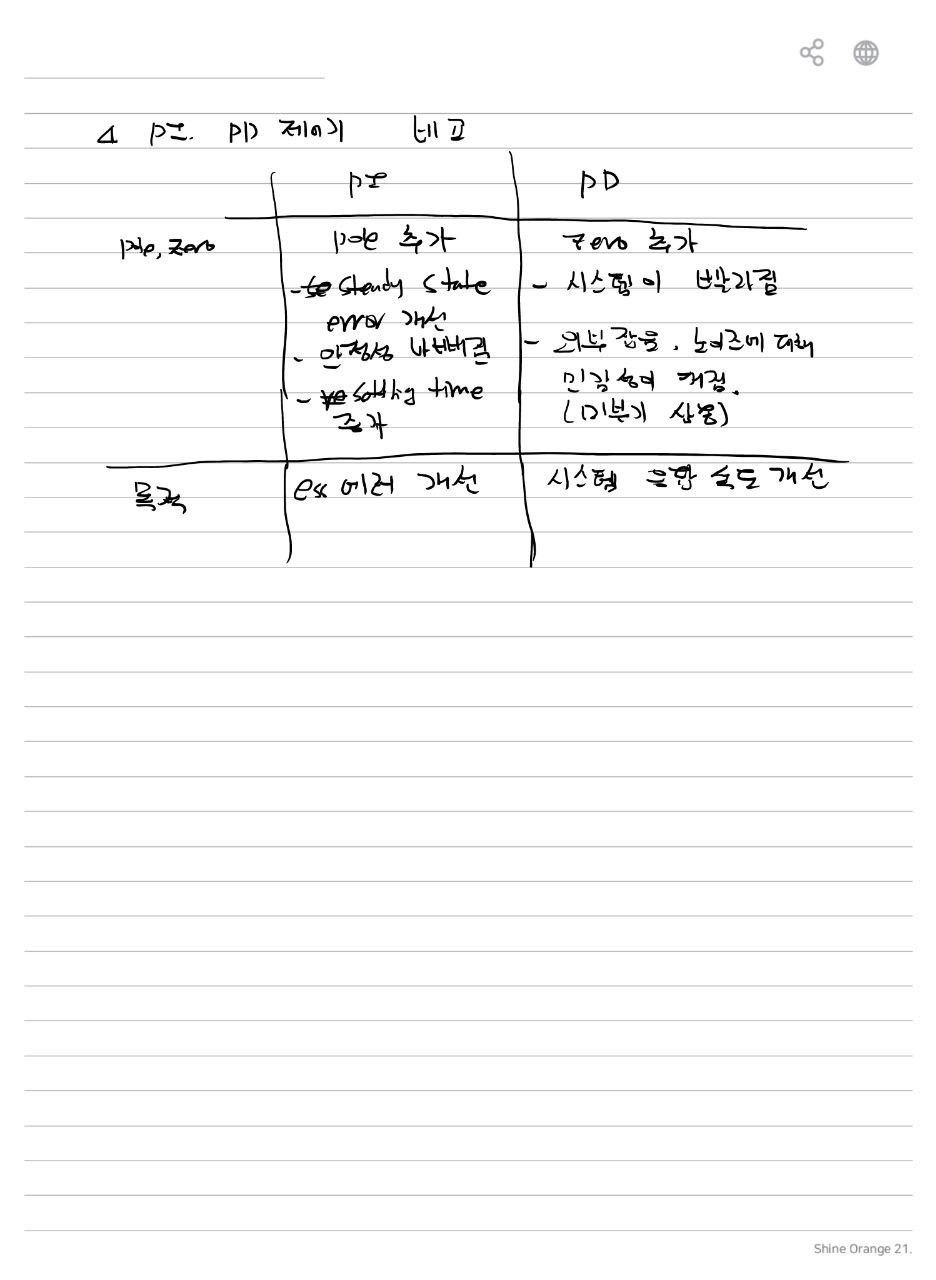 △ PI. PD 제어기 비교
PI PD
pole, zero
pole 추가
- steady state
error 개선
- 안정성 나빠짐
- settling time
증가
zero 추가
- 시스템이 빨라짐
- 외부 잡음, 노이즈에 대해
민감성이 커짐.
(미분기 사용)
목적
ess 에러 개선
시스템 응답 속도 개선
Shine Orange 21.